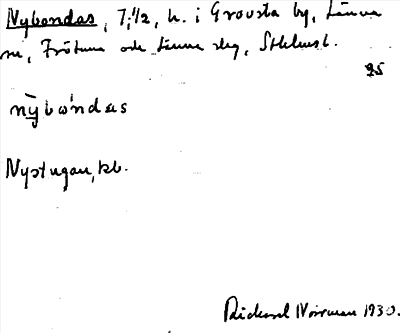 Nybondas, 7, 1/2, h. i Grovsta by, Länna
sn, Frötuna och Länna slg, Sthlmsl.
25
nȳbo̍ndas
Nystugan, kb.
Rickard Norrman 1930.